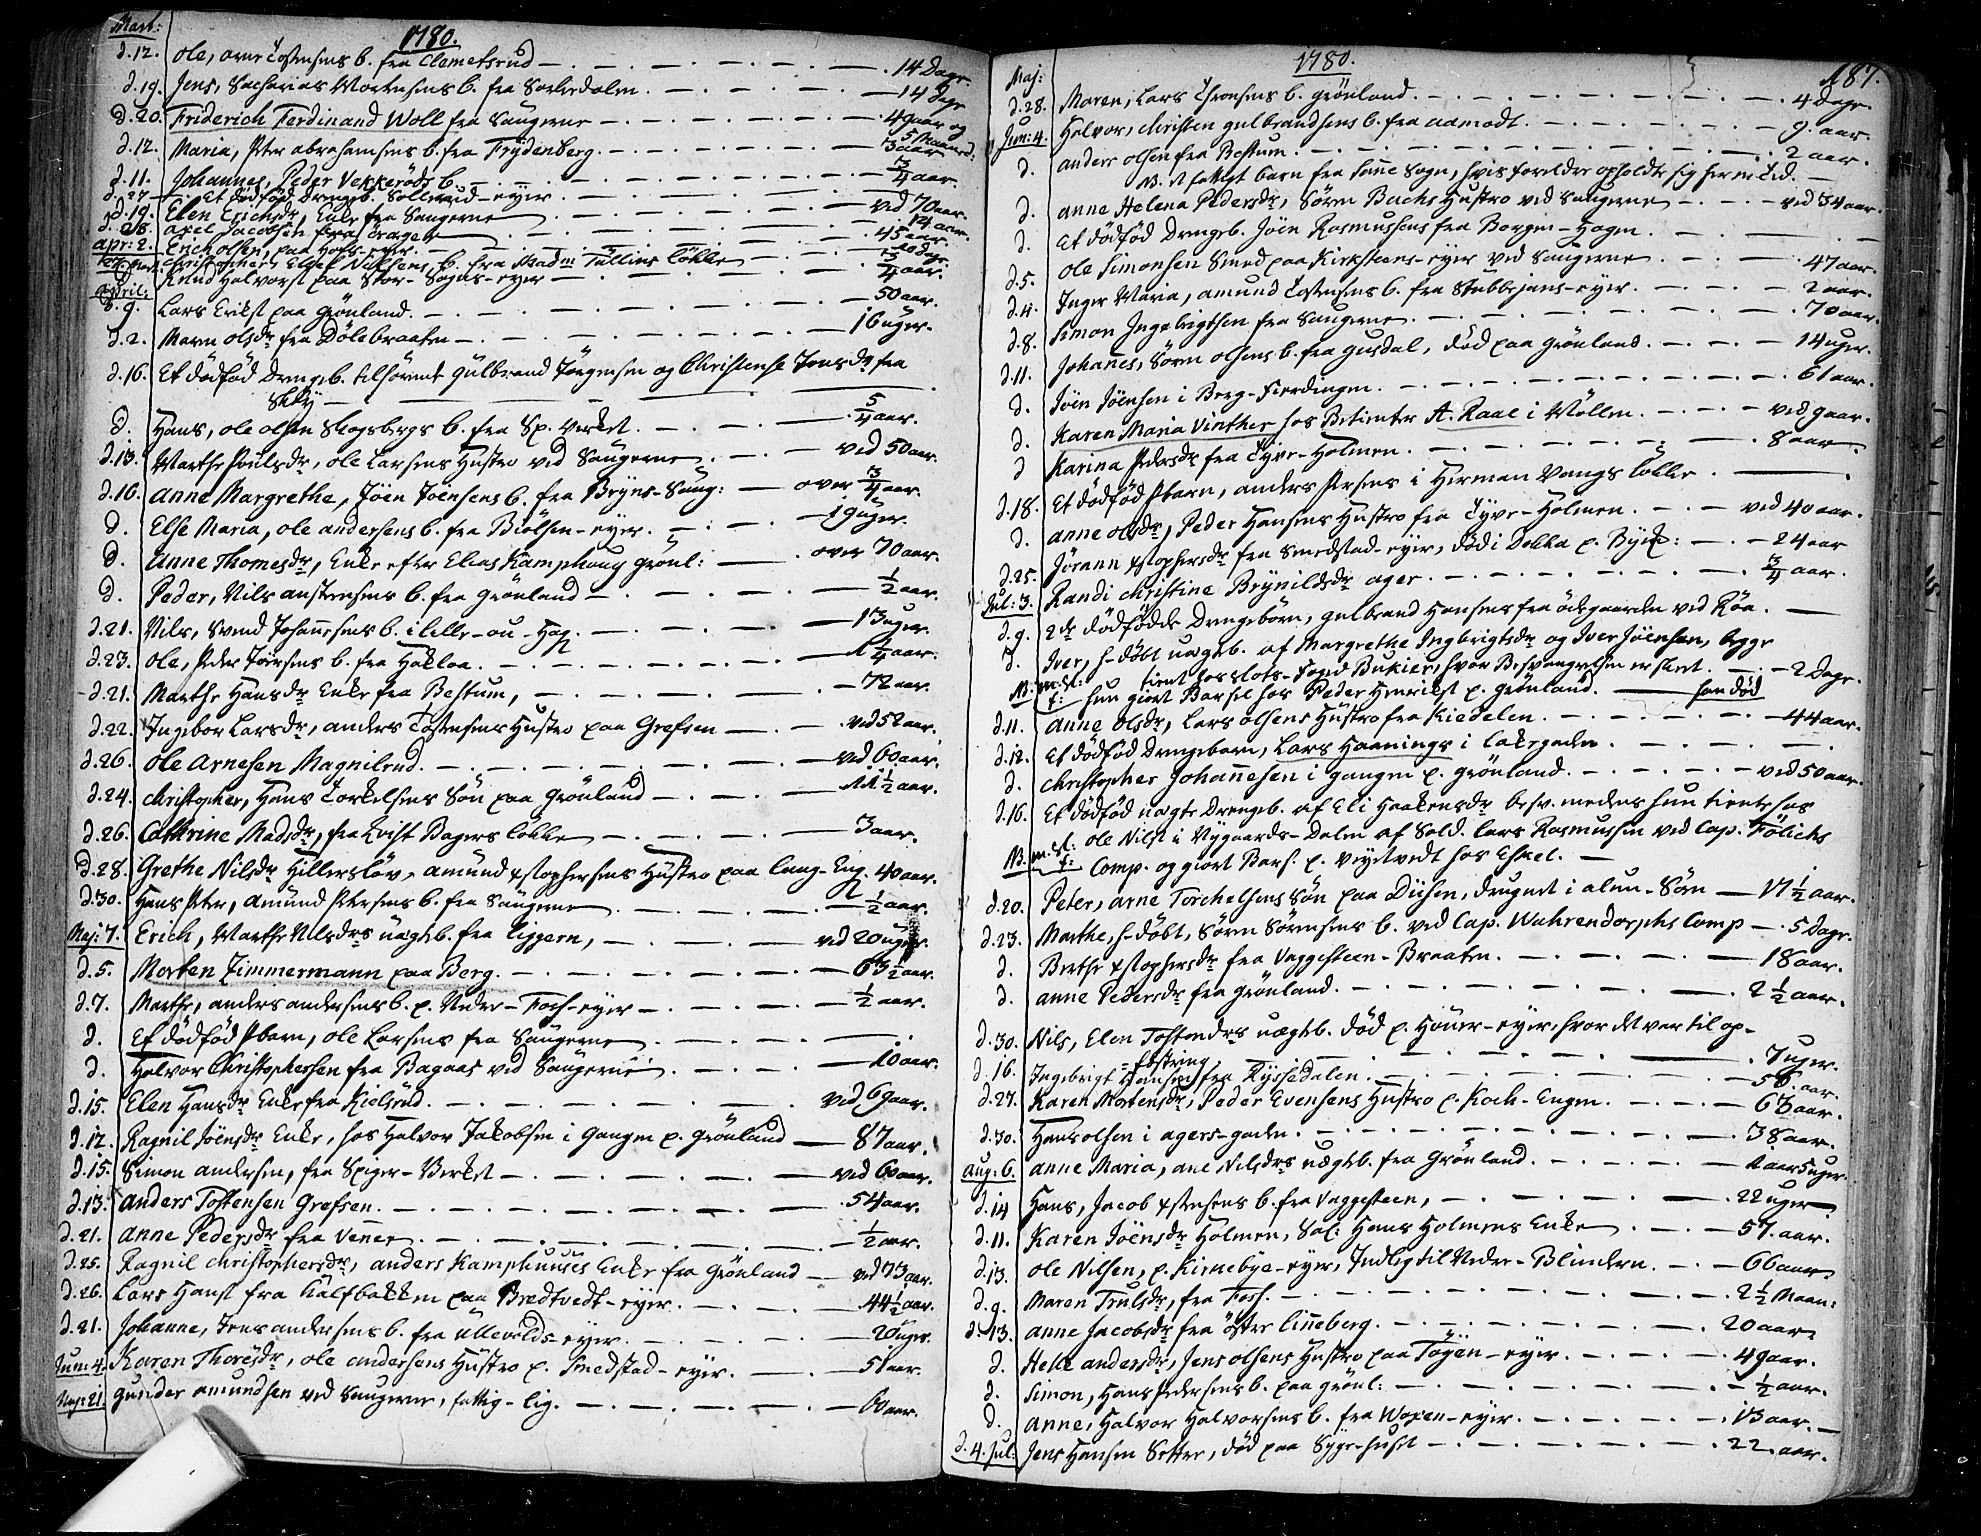 Mart:
1780.
d. 12. Ole, Arne Tostensens b. fra Clemetsrud — 14 Dage
d. 19. Jens, Zacharias Mortensens b. fra Sørkedalen — 14 Dage
d. 20. Friderich Ferdinand Woll fra Saugerne — 4 aar og 5 Maaned
d. 12. Maria, Peter Abrahamsens b. fra Frydenberg — 3 aar
d. 11. Johannes, Peder Vekkerøds b. — 3/4 aar
d. 27 — Et dødfød Drengeb. Sollerud-eyer
d. 19. Elen Erichsdr, Enke fra Saugerne — ved 70 aar.
d. 28. Axel Jacobsen fra Dragen — 14 aar.
Apr: 2. Erich Olsen, paa Hofs-eyer — 45 aar
Christopher, Ellef Nilsens b. fra Madm Tullins Løkke
Knud Halvorsl paa Stor-Sogns-eyer — 3/4 aar.
April:
d. 9. Lars Eriksl paa Grønland — 50 aar.
d. 2. Maren Olsdr fra Dølebraaten — 16 uger.
d. 16. Et dødfød Drengeb. tilhørende Gulbrand Jørgensen og Christense Jensdr fra
Sky
d. Hans, Ole Olsen Skogsbergs b. fra Sp. Verket — 5/4 aar.
d. 13. Marthe Poulsdr, Ole Larsens Hustro ved Saugerne — ved 50 aar.
d. 16. Anne Margrethe, Jøen Joensens b. fra Bryns-Saug: — over 3/4 aar.
d. Else Maria, Ole Andersens b. fra Biølsen-eyer — 19 uger.
d. Anne Thomesdr, Enke efter Elias Kamphoug Grønl: — over 70 aar.
d. Peder, Nils Austensens b. fra Grønland — 1/2 aar.
d. 21. Nils, Svend Johannesens b. i Lille-au-Hag — 13 uger.
d. 23. Ole, Peder Joensens b. fra Hakloa — 1 1/4 aar.
d. 21. Marthe Hansdr Enke fra Bestum — 72 aar.
d. 22. Ingebor Larsdr, Anders Tostensens Hustro paa Grefsen — ved 52 aar.
d. 26. Ole Arnesen Magnilrud — ved 60 aar.
d. 24. Christopher, Hans Torkelsens Søn paa Grønland — 11 1/2 aar.
d. 26. Cathrine Madsdr, fra Qvist Bagers Løkke — 3 aar.
d. 28. Grethe Nilsdr Hillersløv, Amund Xstophersens Hustro paa Lang-Eng 40 aar.
d. 30. Hans Peter, Amund Petersens b. fra Saugerne — 1/2 aar.
Maj: 7. Erich, Marthe Nilsdrs uægteb. fra Liggern, — ved 20 uger
d. 5. Morten Zimmermann paa Berg — 63 1/2 aar.
d. 7. Marthe, Anders Andersens b. p. Neder-Foss-eyer — 1/2 aar.
d. Et dødfød Pbarn, Ole Larsens fra Saugerne
d. Halvor Christophersen fra Bagaas ved Saugerne — 10 aar.
d. 15. Elen Hansdr Enke fra Kielsrud — ved 69 aar.
d. 12. Ragnil Jøensdr Enke, hos Halvor Jakobsen i Gangen p. Grønland — 87 aar.
d. 15. Simon Andersen, fra Spiger-Verket — ved 60 aar.
d. 13. Anders Tostensen Grefsen — 54 aar.
d. 21. Anne Pedersdr fra Vennee — 1/2 aar.
d. 25. Ragnil Christophersdr, Anders Kamphuuses Enke fra Grønland — ved 73 aar.
d. 26. Lars Hansl fra Kalfbakken paa Bredtvedt-eyer — 44 1/2 aar.
d. 21. Johanne, Jens Andersens b. fra Ullevolds-eyer — 20 uger.
Jun: 4. Karen Thoresdr, Ole Andersens Hustro p. Smedstad-eyer — 51 aar.
Maj: 21. Gunder Amundsen ved Saugerne, fattig-lig — 60 aar.
1780.
187.
Maj:
d. 28. Maren, Lars Thronsens b. Grønland — 4 Dage.
Jun: 4. Halvor, Christen Gulbrandsens b. fra Aamodt — 9 aar.
d. Anders Olsen fra Bestum — 2 aar.
NB. et fattigt barn fra Land Sogn, hvis Forældre opholdt sig her en Tid.
d. Anne Helena Pedersdr, Søren Bachs Hustro ved Saugerne — ved 34 aar.
d. Et dødfød Drengeb. Jøen Rasmussens fra Borgen-Hagen
d. 5. Ole Simonsen Smed paa Kirksteens-eyer ved Saugerne — 47 aar.
d. 4. Inger Maria, Amund Tostensens b. fra Stubberjans-eyer — 2 aar.
d. 8. Simon Ingebrigtsen fra Saugerne — 70 aar.
d. 11. Johanes, Søren Olsens b. fra Gusdal, død paa Grønland — 14 uger.
d. Jøen Jøensen i Berg-Fierdingen — 61 aar.
d. Karen Maria Vinther hos Betienter A. Raae i Møllen — ved 9 aar.
d. Karina Pedersdr fra Tyve-Holmen — 8 aar
d. 18. Et dødfød Pbarn, Anders Persens i Herman Vangs Løkke
d. Anne Olsdr, Peder Hansens Hustro fra Tyve-Holmen — ved 40 aar.
d. 25. Jørann Xstophersdr fra Smedstad-eyer, død i Dokka p. Byeg: — 24 aar
Jul: 3. Randi Christine Brynildsdr Ager — 3/4 aar.
d. 9. 2de dødfødde Drengebørn, Gulbrand Hansens fra Ødegaarden ved Røa.
d. Iver, h-døbt uægteb. af Margrethe Ingbrigtsdr og Iver Jøensen, begge
tient hos Slots-Foged Bukier, hvor Besvangrelsen er skeet. — 2 Dage.
NB. m. st: f: hun giort Barsel hos Peder Henriksl p. Grønland. — hun død
d. 11. Anne Olsdr, Lars Olsens Hustro fra Kiedelen — 44 aar.
d. 12. Et dødfød Drengebarn, Lars Haanings i Lakegaden
d. Christopher Johannesen i Gangen p. Grønland — ved 50 aar.
d. 16. Et dødfød uægte Drengeb. af Eli Haakensdr besv. medens hun tiente hos
NB. m. st: f: Ole Nilsl i Nygaards-Dalen af Sold. Lars Rasmussen ved Cap. Frölichs
Comp. og giort Bars: p. Veyetvedt hos Eskel.
d. 20. Peter, Arne Torchelsens Søn paa Disen, druknet i Alun-Søen — 17 1/2 aar.
d. 23. Marthe, h-døbt, Søren Sørensens b. ved Cap. Wahrendorphs Comp — 5 Dage.
d. Berthe Xstophersdr fra Veggesteen-Braaten — 18 aar.
d. Anne Pedersdr fra Grønland — 2 1/2 aar.
d. 30. Nils, Elen Tostendrs uægteb. død p. Houer-eyer, hvor det var til op-
fostring — 7 uger.
d. 16. Ingebrigt Hansen fra Ryssedalen — 56 aar
d. 27. Karen Mortensdr, Peder Evensens Hustro p. Koch-Engen — 63 aar.
d. 30. Hans Olsen i Agers-gaden — 38 aar.
Aug: 6. Anne Maria, Ane Nilsdrs uægteb. fra Grønland — 1 aar 5 uger
d. 14 Hans, Jacob Xstensens b. fra Veggesteen — 22 uger
d. 11. Karen Jøensdr Holmen, Sal: Hans Holmens Enke — 57 aar.
d. 13. Ole Nilsen, p. Kirkebye-eyer, Indlig til Neder-Blindern — 66 aar
d. 9. Maren Trulsdr, fra Foss — 2 1/2 Maan:
d. 13. Anne Jacobsdr fra Øster Linneberg — 20 aar
d. Helle Andersdr, Jens Olsens Hustro paa Tøyen-eyer — 49 aar.
d. Simon, Hans Pedersens b. paa Grønl: — 1/2 aar.
d. Anne, Halvor Halvorsens b. fra Woxen-eyer — 13 aar.
d. 4. Jul: Jens Hansen Sætter, død paa Syge-huset — 22 aar.